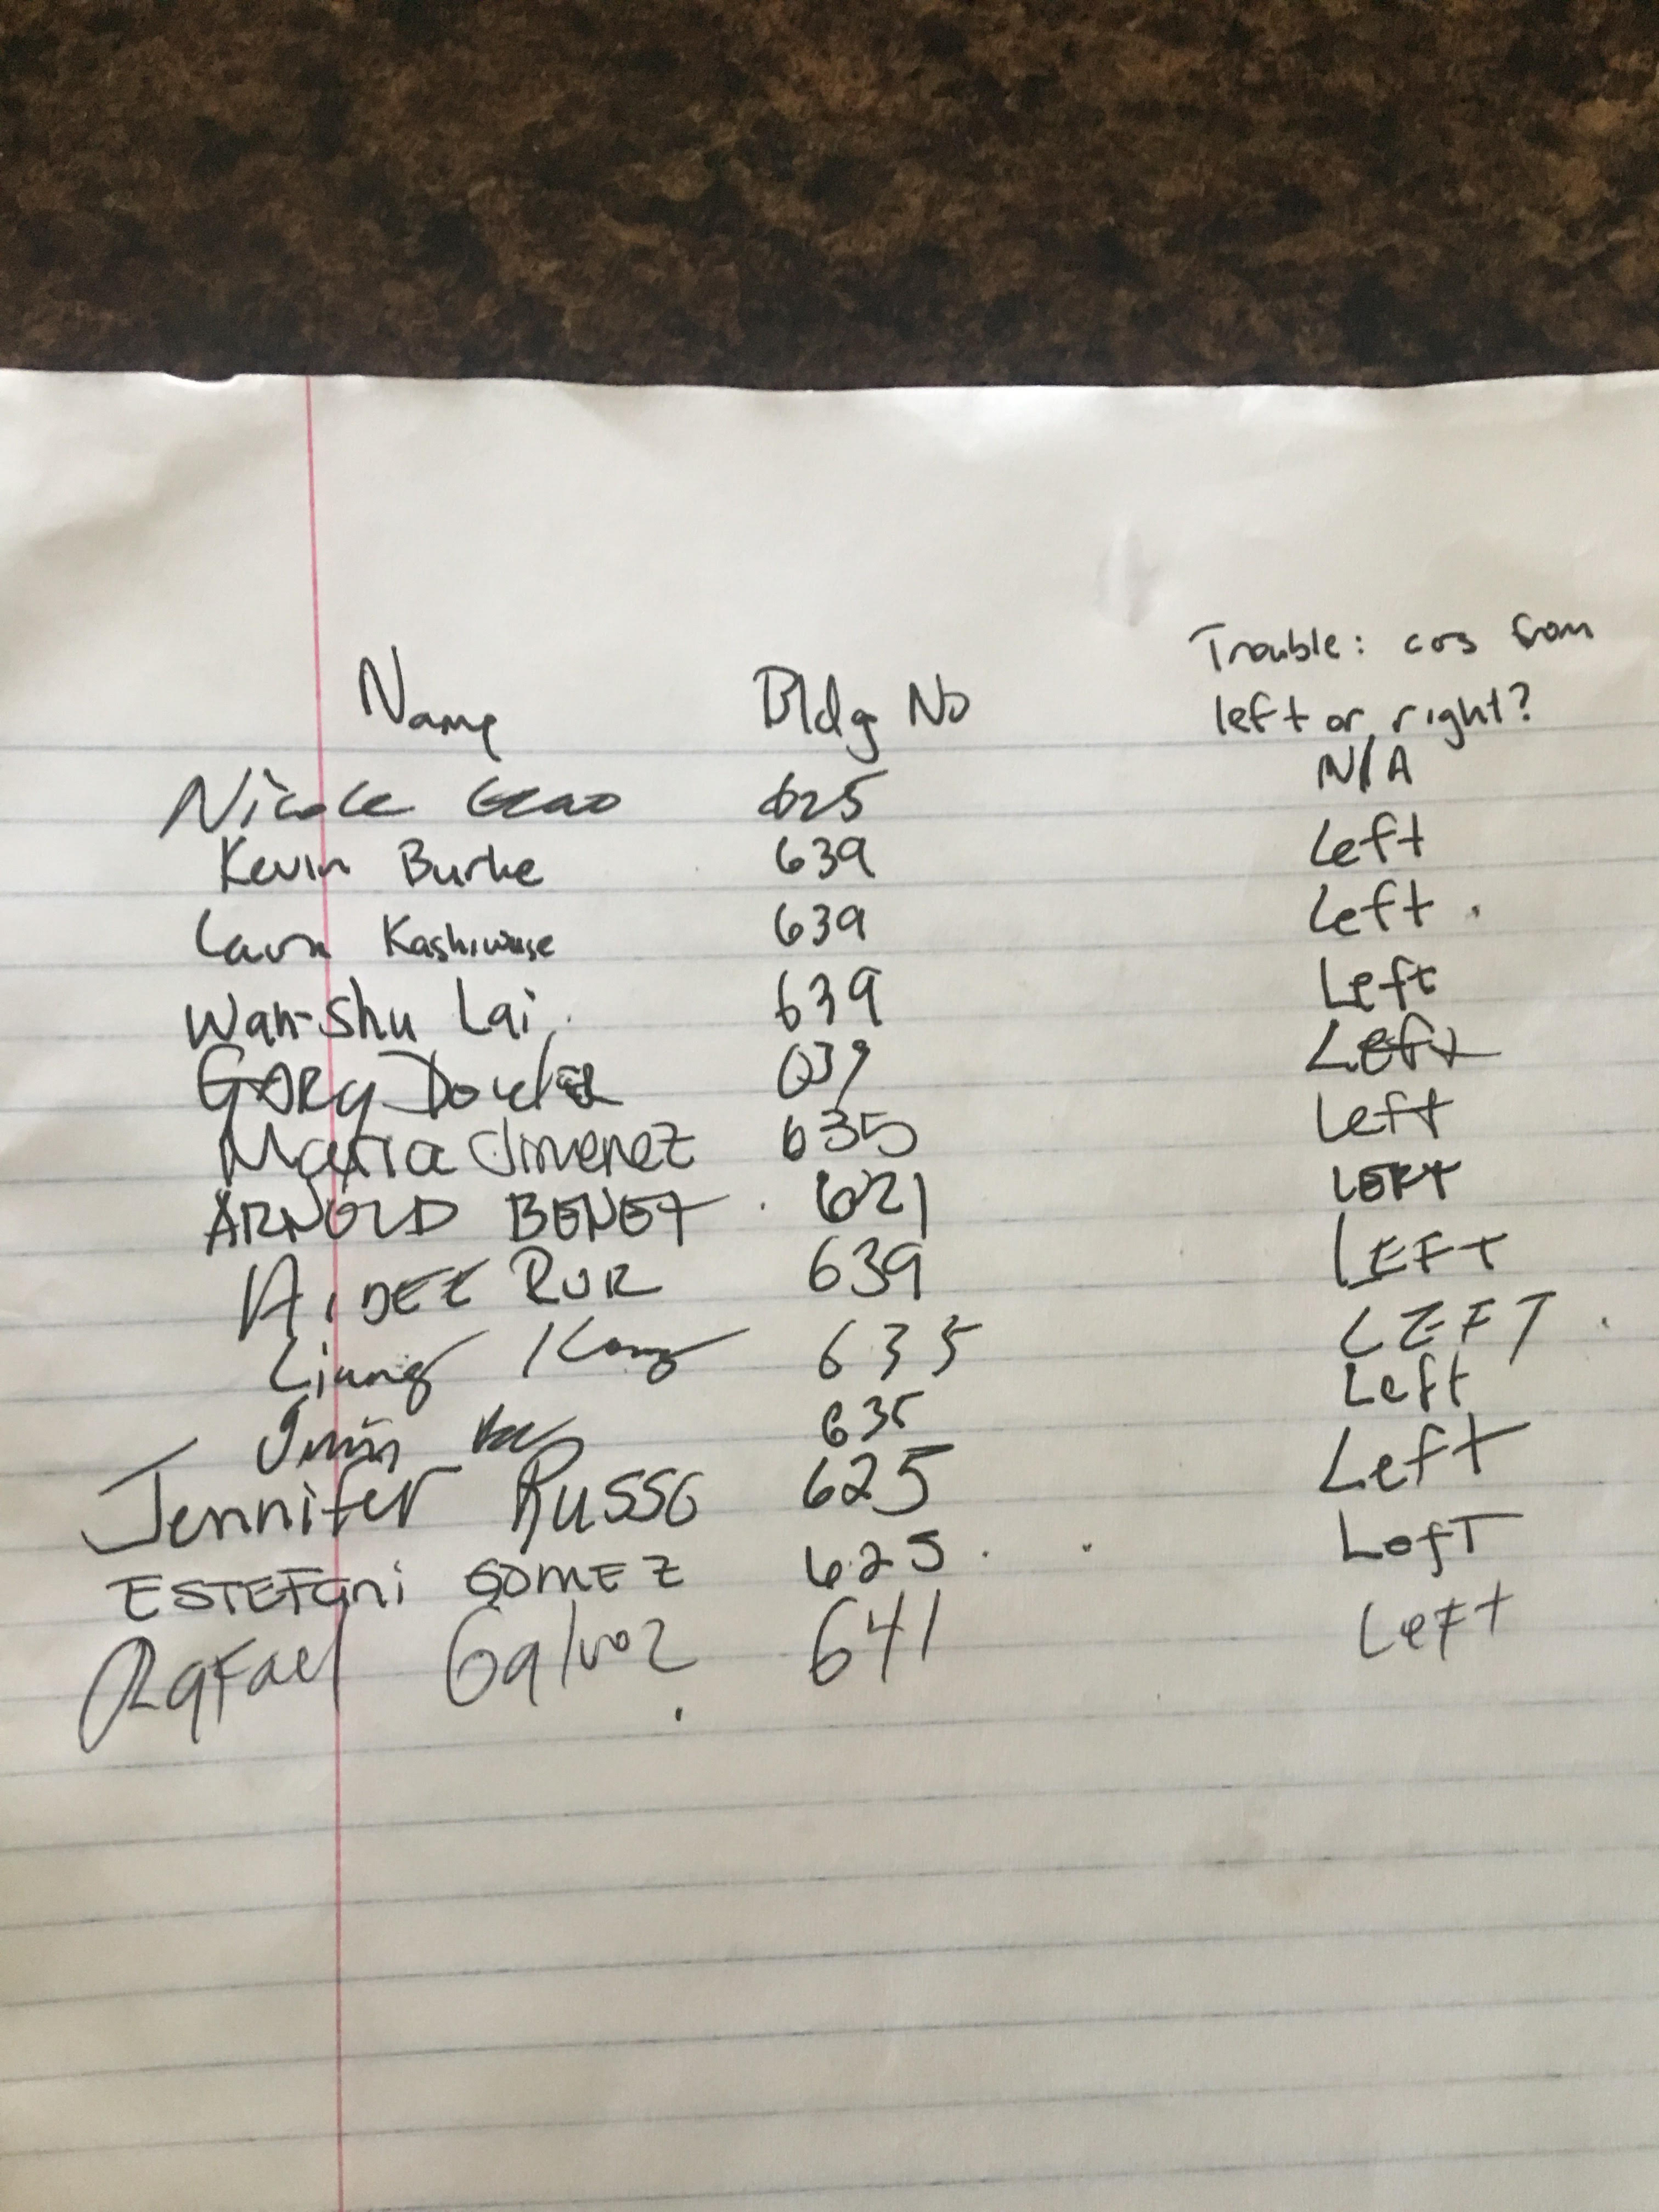 Trouble: cars from
Name Bldg No left or right?
Nicole Gao 625 N/A
Kevin Burke 639 Left
Laura Kashiwase 639 Left
Wan-Shu Lai 639 Left
GARY 639 Left
Maria Jimenez 635 Left
ARNOLD BENET 621 LEFT
AIDEE RUR 639 LEFT
Liang Kong 635 LEFT
635 Left
Jennifer Russo 625 Left
ESTEFani GOMEZ 625 LefT
Rafael Galvoz 641 LeFt